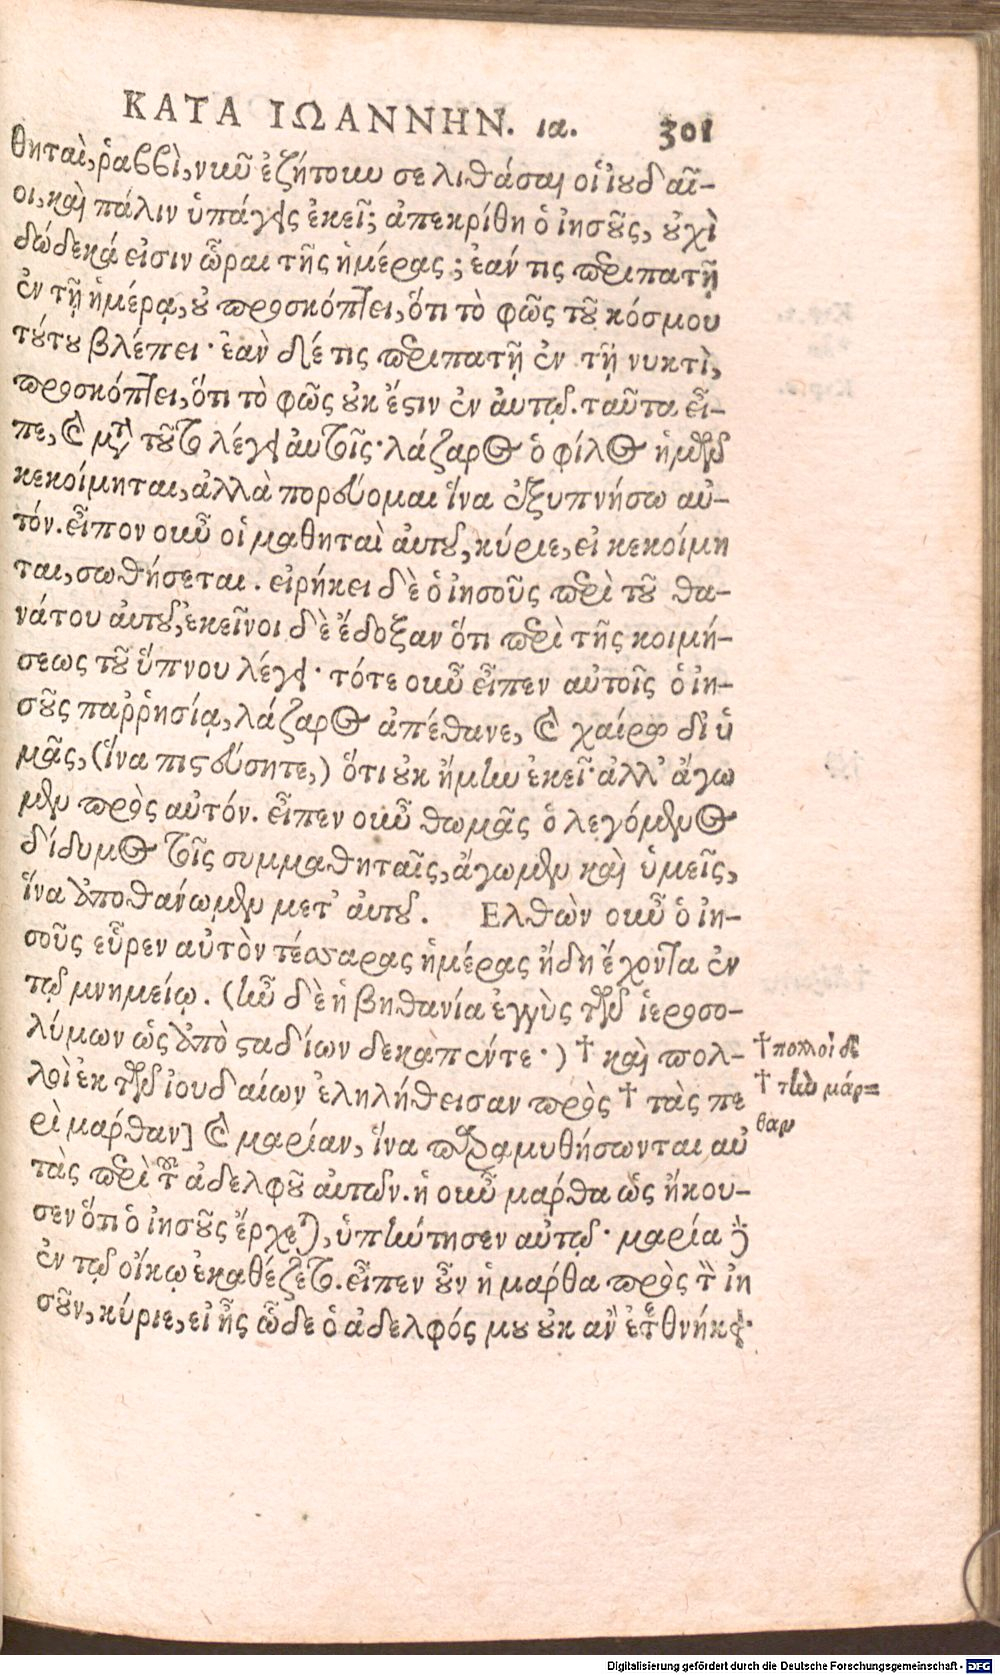 ΚΑΤΑ ΙΩΑΝΝΗΝ. ια. 301
θηταὶ, ῥαββὶ, νῦν ἐζήτουν σε λιθάσαι οἱ ἰουδαῖ-
οι, καὶ πάλιν ὑπάγεις ἐκεῖ; ἀπεκρίθη ὁ ἰησοῦς, οὐχὶ
δώδεκά εἰσιν ὧραι τῆς ἡμέρας; ἐάν τις περιπατῇ
ἐν τῇ ἡμέρᾳ, οὐ προσκόπτει, ὅτι τὸ φῶς τοῦ κόσμου
τούτου βλέπει· ἐὰν δέ τις περιπατῇ ἐν τῇ νυκτὶ,
προσκόπτει, ὅτι τὸ φῶς οὐκ ἔστιν ἐν αὐτῷ. ταῦτα εἶ-
πε, καὶ μετὰ τοῦτο λέγει αὐτοῖς· λάζαρος ὁ φίλος ἡμῶν
κεκοίμηται, ἀλλὰ πορεύομαι ἵνα ἐξυπνήσω αὐ-
τόν. εἶπον οὖν οἱ μαθηταὶ αὐτοῦ, κύριε, εἰ κεκοίμη
ται, σωθήσεται. εἰρήκει δὲ ὁ ἰησοῦς περὶ τοῦ θα-
νάτου αὐτοῦ, ἐκεῖνοι δὲ ἔδοξαν ὅτι περὶ τῆς κοιμή-
σεως τοῦ ὕπνου λέγει· τότε οὖν εἶπεν αὐτοῖς ὁ ἰη-
σοῦς παῤῥησίᾳ, λάζαρος ἀπέθανε, καὶ χαίρω δι ὑ
μᾶς, (ἵνα πιστεύσητε,) ὅτι οὐκ ἤμην ἐκεῖ· ἀλλ' ἄγω
μεν πρὸς αὐτόν. εἶπεν οὖν θωμᾶς ὁ λεγόμενος
δίδυμος τοῖς συμμαθηταῖς, ἄγωμεν καὶ ὑμεῖς,
ἵνα ἀποθάνωμεν μετ' αὐτοῦ. Ελθὼν οὖν ὁ ἰη-
σοῦς εὗρεν αὐτὸν τέσσαρας ἡμέρας ἤδη ἔχοντα ἐν
τῷ μνημείῳ. (ἦν δὲ ἡ βηθανία ἐγγὺς τῶν ἱεροσο-
λύμων ὡς ἀπὸ σταδίων δεκαπέντε·) † καὶ πολ-
λοὶ ἐκ τῶν ἰουδαίων ἐληλύθεισαν πρὸς † τὰς πε
ρὶ μάρθαν] καὶ μαρίαν, ἵνα παραμυθήσωνται αὐ
τὰς περὶ τοῦ ἀδελφοῦ αὐτῶν. ἡ οὖν μάρθα ὡς ἤκου-
σεν ὅτι ὁ ἰησοῦς ἔρχεται, ὑπήντησεν αὐτῷ· μαρία δὲ
ἐν τῷ οἴκῳ ἐκαθέζετο. εἶπεν οὖν ἡ μάρθα πρὸς τὸν ἰη
σοῦν, κύριε, εἰ ἦς ὧδε ὁ ἀδελφός μου οὐκ ἂν ἐτεθνήκει·
† πολλοὶ δὲ
† τὴν μάρ=
θαν
Digitalisierung gefördert durch die Deutsche Forschungsgemeinschaft - DFG